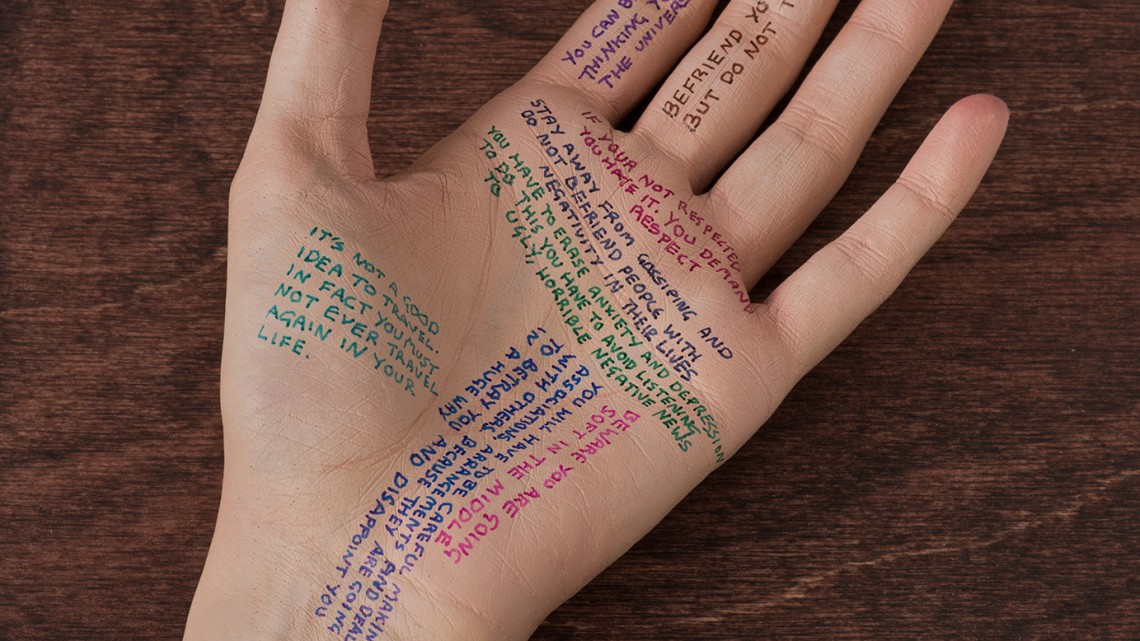 YOU CAN B
THINKING YO
THE UNIVER
BEFRIEND YO
BUT DO NOT T
IF YOUR NOT RESPECTED
YOU HATE IT. YOU DEMAND
RESPECT
STAY AWAY FROM GOSSIPING AND
DO NOT DEFRIEND PEOPLE WITH
NEGATIVITY IN THEIR LIVES
YOU HAVE TO ERASE ANXIETY AND DEPRESSION
TO DO THIS YOU HAVE TO AVOID LISTENING
TO UGLY, HORRIBLE NEGATIVE NEWS
IT'S NOT A GOOD
IDEA TO TRAVEL.
IN FACT YOU MUST
NOT EVER TRAVEL
AGAIN IN YOUR
LIFE.
YOU WILL HAVE TO BE CAREFUL MAKIN
ASSOCIATIONS, ARRANGEMENTS AND DEAL
WITH OTHERS, BECAUSE THEY ARE GOING
TO BETRAY YOU AND DISAPPOINT YOU
IN A HUGE WAY
BEWARE YOU ARE GOING
SOFT IN THE MIDDLE